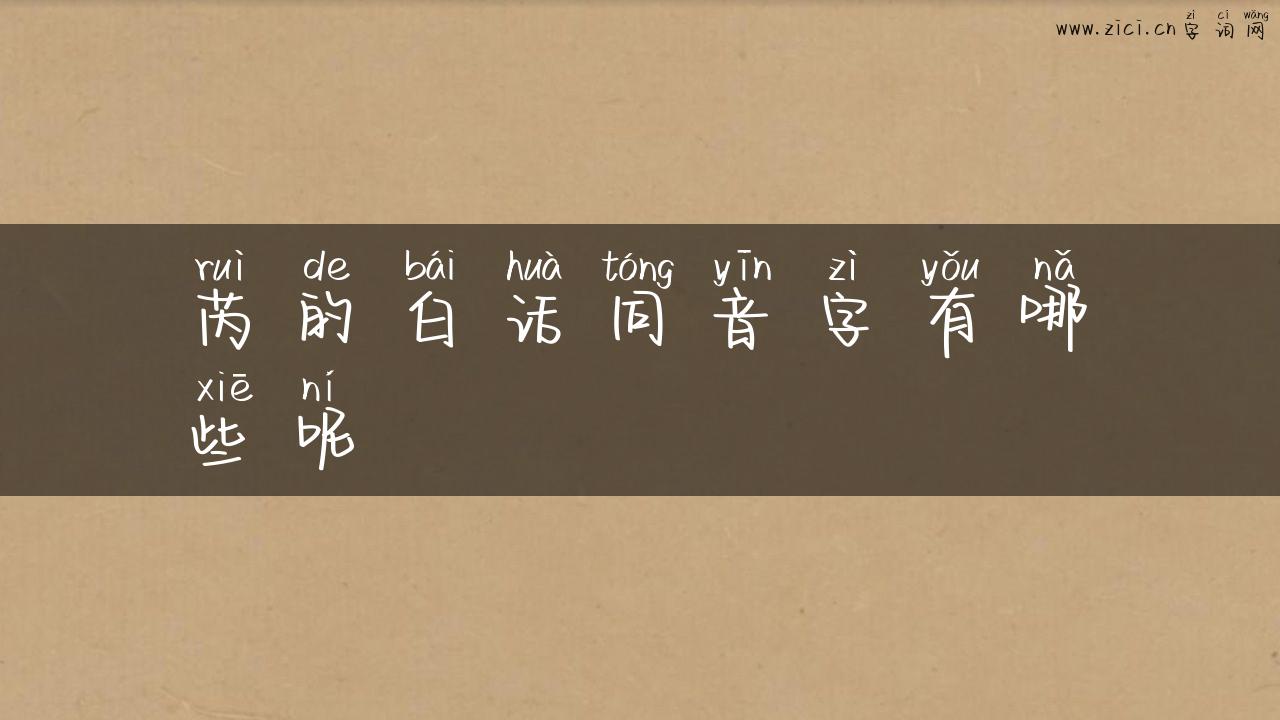 zì cí wǎng
www.zici.cn 字 词 网
ruì de bái huà tóng yīn zì yǒu nǎ
芮 的 白 话 同 音 字 有 哪
xiē ní
些 呢